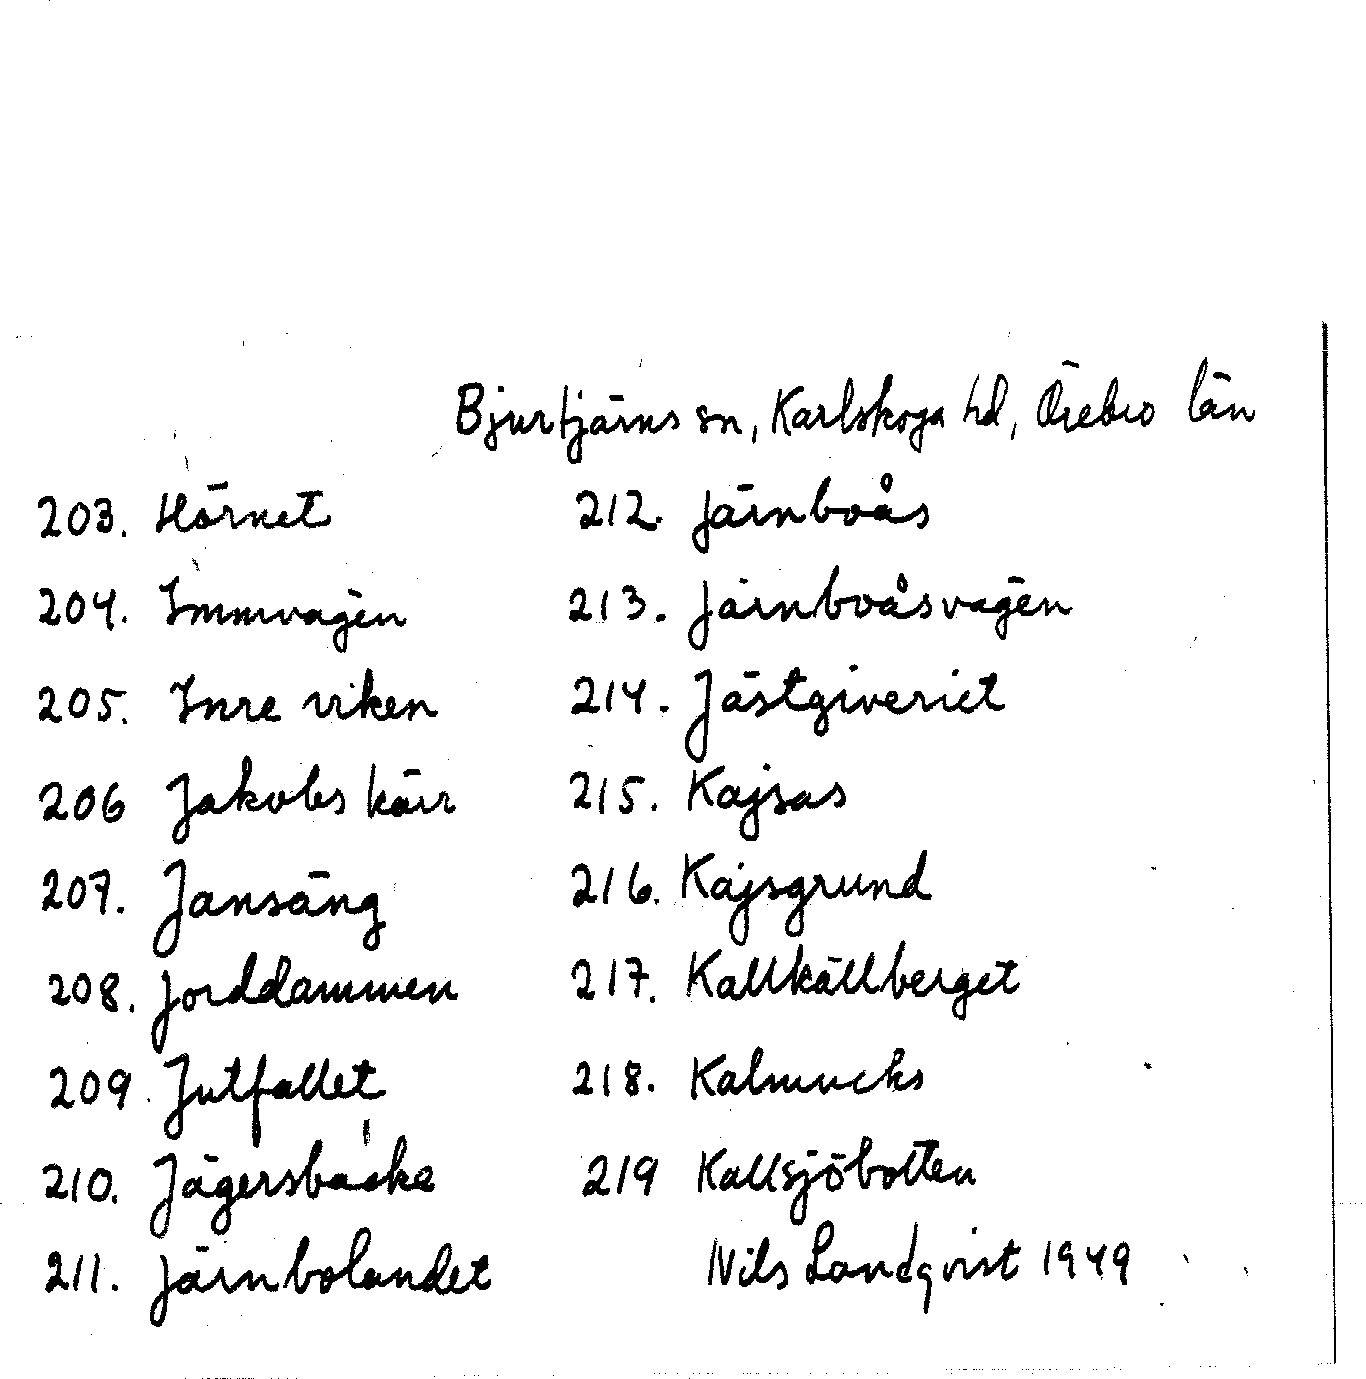 Bjurtjärns sn, Karlskoga hd, Örebro län
203. Hörnet
204. Immvägen
205. Inre viken
206 Jakobs kärr
207. Jansäng
208. Jorddammen
209. Jutfallet
210. Jägersbacke
211. Järnbolandet
212. Järnboås
213. Järnboåsvägen
214. Jästgiveriet
215. Kajsas
216. Kajsgrund
217. Kallkällberget
218. Kalmucks
219 Kallsjöbotten
Nils Landqvist 1949